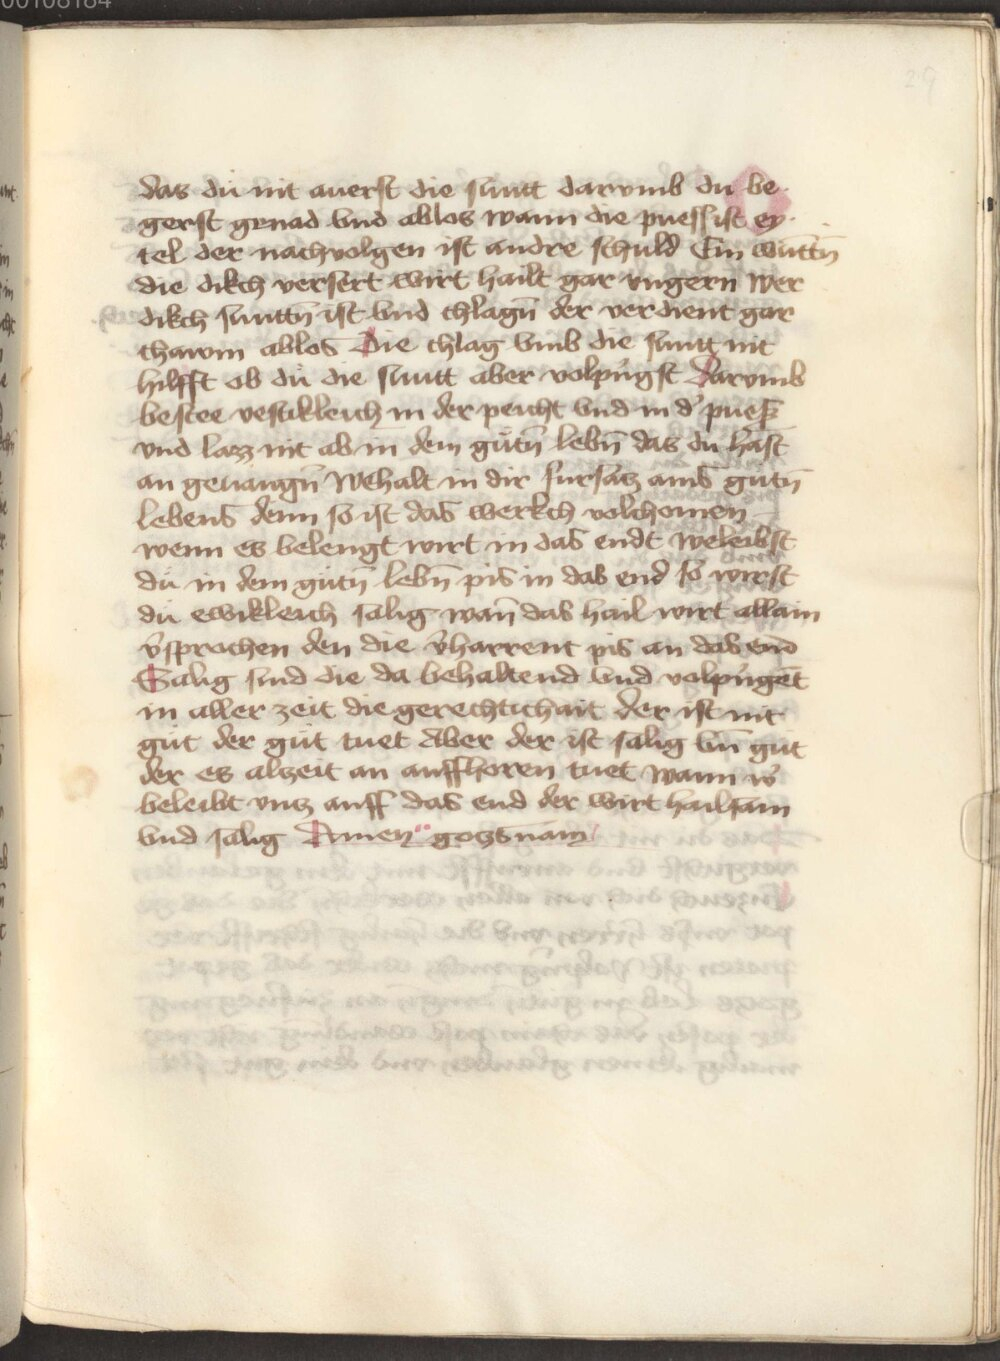 00108184
29
das dü nit auerst die suntt darumb du be
gerst genad vnd ablos wann die puess ist ey
tel der nachuolgen ist andre schuld Ein wuntn̄
die dikch versert wirt hailt gar vngern Wer
dikch sunttn̄ ist vnd chlagn̄ der verdient gar
chawm ablos Die chlag vmb die suntt nit
hilfft ob dü die suntt aber volpringst Darumb
bestee vestikleich in der peicht vnd in d' puess
vnd lazz nit ab in dem gütn̄ lebn̄ das du hast
an geuangn̄ Wehalt in dir fürsatz ains gütn̄
lebens denn so ist das werkch volchomen
wenn es belengt wirt in das endt Weleibst
dü in dem gütn̄ lebn̄ pis in das end so wirst
dü ewikleich salig wan̄ das hail wirt allain
v̓sprochen den die v̓harrent pis an das end
Salig sind die da behaltend vnd volpringēt
in aller zeit die gerechtichait Der ist nit
güt der güt tuet Aber der ist salig vn̄ güt
der es alzeit an auffhoren tuet Wann w̓
beleibt vntz auff das end der wirt hailsam
vnd salig Amen gotzs nam